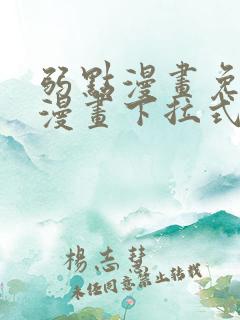 弱點漫畫免
漫畫下拉式
楊志慧
未經同意禁止轉載